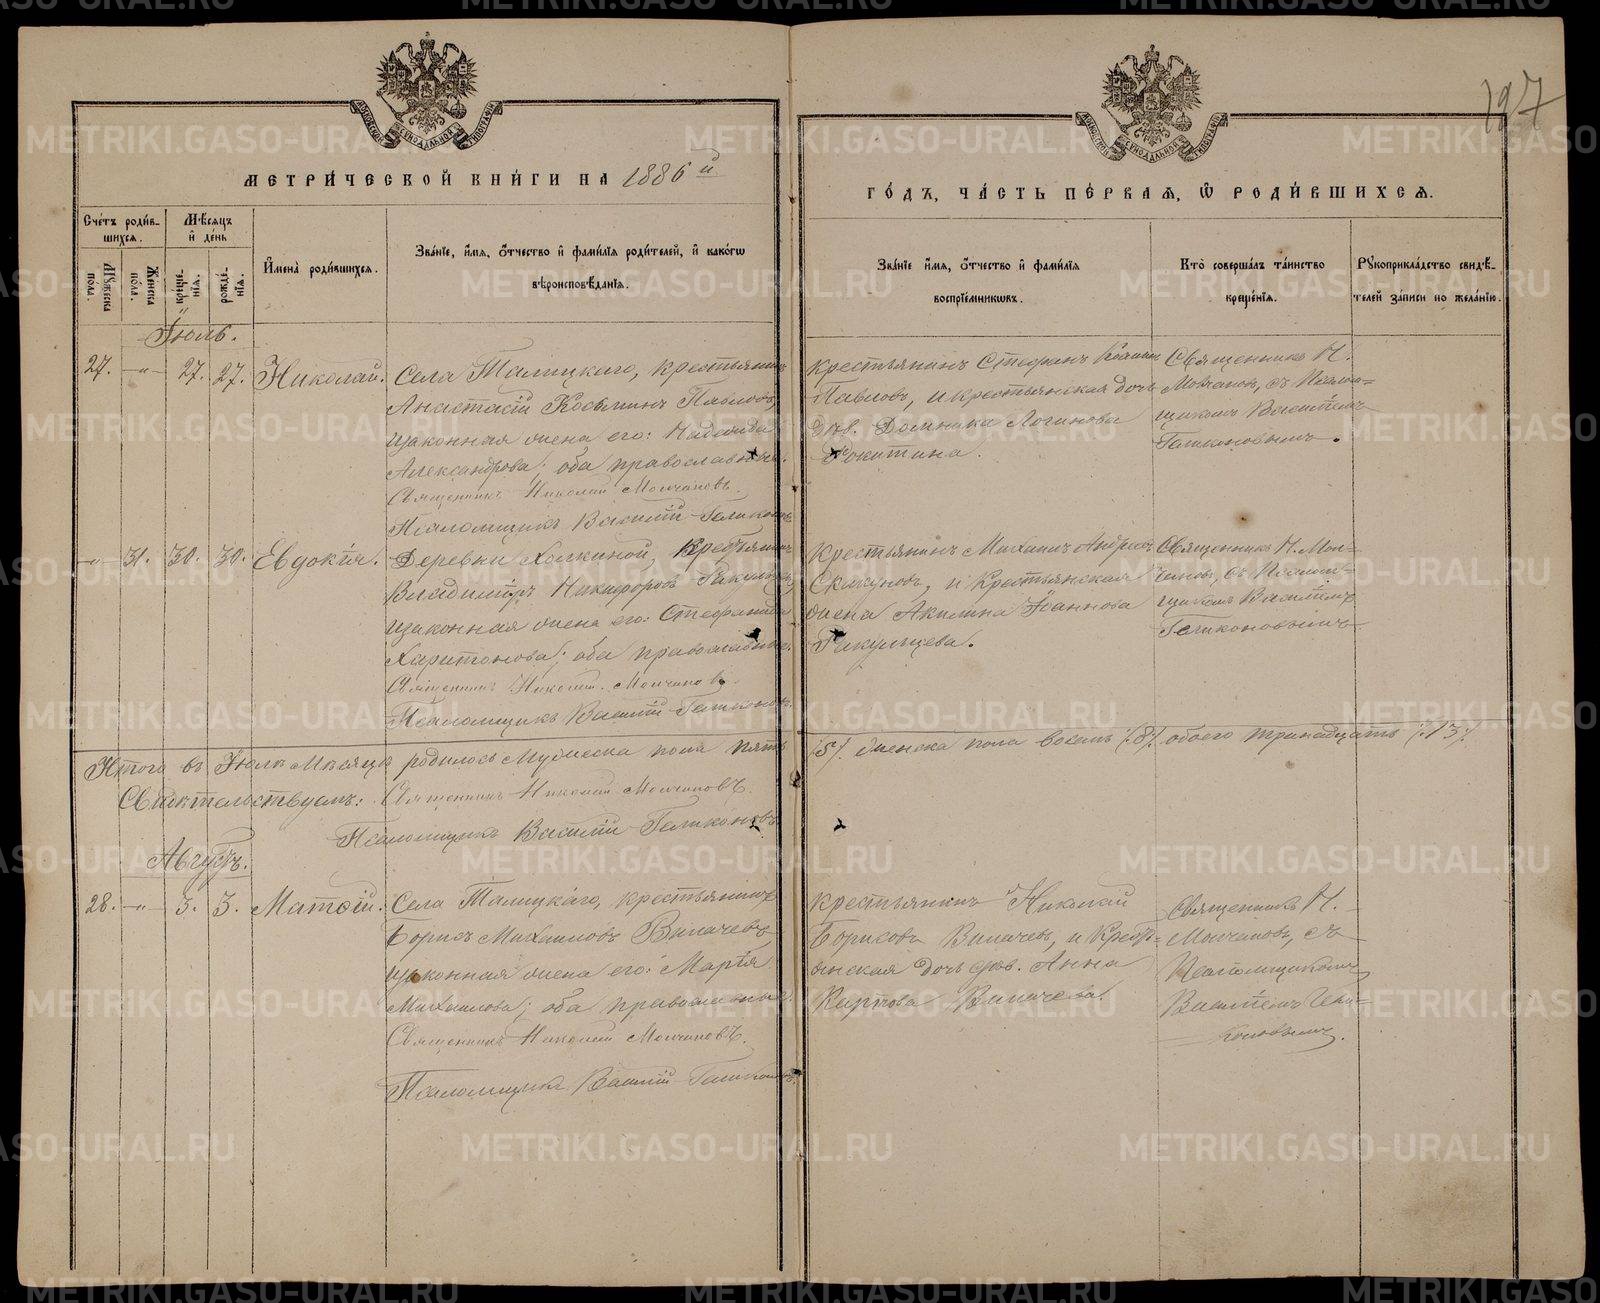 127
МЕТРИЧЕСКОЙ КНИГИ НА 1886й
ГОДЪ, ЧАСТЬ ПЕРВАЯ, Ѡ РОДИВШИХСЯ.
Счетъ родив-
шихся.
Мѣсяцъ
и день
Мужеска
пола.
Женска
пола.
креще-
нїя.
рожде-
нїя.
Имена родившихся.
Званїе, имя, отчество и фамилїя родителей, и какогѡ
вѣроисповѣданїя.
Званїе имя, отчество и фамилїя
воспрїемниковъ.
Кто совершалъ таинство
крещенїя.
Рукоприкладство свидѣ-
телей записи по желанїю.
Іюль.
27. — 27. 27. Николай.
Села Талицкаго, крестьянинъ
Анастасій Косьминъ Павловъ,
изаконная жена его: Надежда
Александрова; оба православные.
Священникъ Николай Молчановъ.
Псаломщикъ Василій
Крестьянинъ Стефанъ Косьминъ
Павловъ, и крестьянская дочь
дѣв. Домника Логинова
Рокитина.
Священникъ Н.
Молчановъ, съ Псалом-
щикомъ Василіемъ
— 31. 30. 30. Евдокія.
Деревни Холкиной, Крестьянинъ
Владиміръ Никифоровъ
изаконная жена его: Стефанида
Харитонова; оба православные.
Священникъ Николай Молчановъ.
Псаломщикъ Василій
Крестьянинъ Михаилъ Андреевъ
Скакуновъ, и Крестьянская
жена Акилина Іоаннова
Священникъ Н. Мол-
чановъ, съ Псалом-
щикомъ Василіемъ
Итого въ Іюлѣ Мѣсяцѣ родилось Мужеска пола пять
/5/. Женска пола восемь /8/. обоего тринадцать /13/.
Свидѣтельствуемъ: Священникъ Николай Молчановъ.
Псаломщикъ Василій
Августъ.
28. — 3. 3. Матѳій.
Села Талицкаго, крестьянинъ
Борисъ Михаиловъ Випачевъ
изаконная жена его: Марія
Михаилова; оба православные.
Священникъ Николай Молчановъ.
Псаломщикъ Василій
Крестьянинъ Николай
Борисовъ Випачевъ, и Кресть-
янская дочь дѣв. Анна
Карпова Випачева.
Священникъ Н.
Молчановъ, съ
Псаломщикомъ
Василіемъ
METRIKI.GASO-URAL.RU